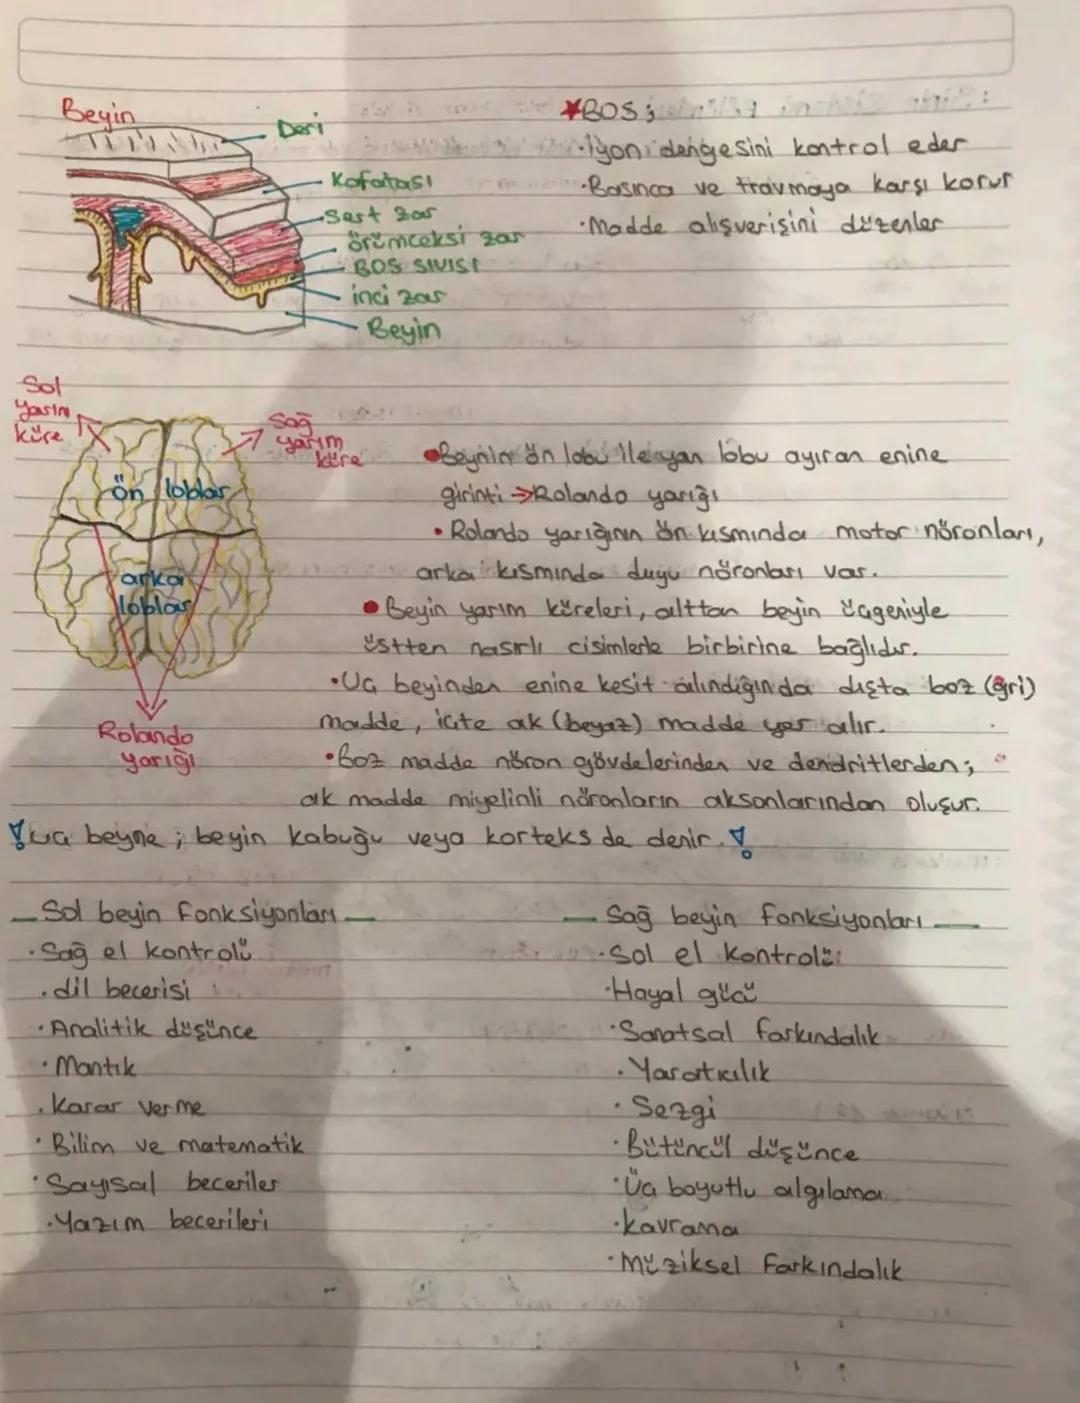 Beyin
Deri
Kafatası
Sert zar
örümceksi zar
BOS SIVISI
inci zar
Beyin
BOS;
İyon dengesini kontrol eder
Basınca ve travmaya karşı korur
Madde alışverişini düzenler
Sol
yarım
küre
Sağ
yarım
küre
ön loblar
arka
loblar
Rolando
yarığı
Beynin ön lobu ile yan lobu ayıran enine
girinti → Rolando yarığı
• Rolando yarığının ön kısmında motor nöronları,
arka kısmında duyu nöronları var.
• Beyin yarım küreleri, alttan beyin üçgeniyle
üstten nasırlı cisimlerle birbirine bağlıdır.
• Uç beyinden enine kesit alındığında dışta boz (gri)
madde, içte ak (beyaz) madde yer alır.
• Boz madde nöron gövdelerinden ve dendritlerden;
ak madde miyelinli nöronların aksonlarından oluşur.
! uç beyne; beyin kabuğu veya korteks de denir. !
Sol beyin fonksiyonları
• Sağ el kontrolü
• dil becerisi
• Analitik düşünce
• Mantık
• Karar verme
• Bilim ve matematik
• Sayısal beceriler
• Yazım becerileri
Sağ beyin fonksiyonları
• Sol el kontrolü
• Hayal gücü
• Sanatsal farkındalık
• Yaratıcılık
• Sezgi
• Bütüncül düşünce
• Üç boyutlu algılama
• kavrama
• Müziksel Farkındalık